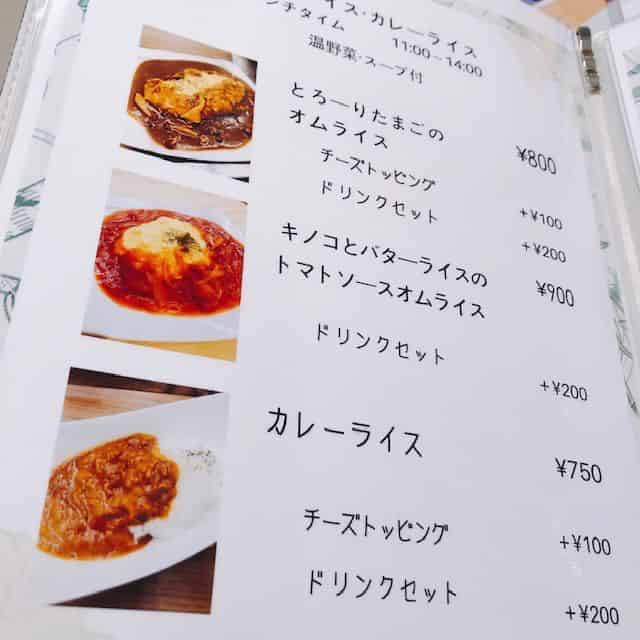 イス・カレーライス
ンチタイム 11:00~14:00
温野菜・スープ付
とろーりたまごの
オムライス ¥800
チーズトッピング +¥100
ドリンクセット +¥200
キノコとバターライスの
トマトソースオムライス ¥900
ドリンクセット +¥200
カレーライス ¥750
チーズトッピング +¥100
ドリンクセット +¥200